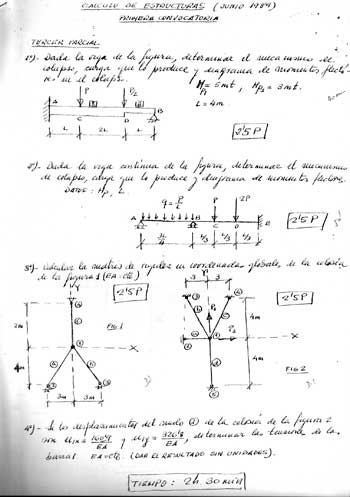 CALCULO DE ESTRUCTURAS (JUNIO 1984)
PRIMERA CONVOCATORIA
TERCER PARCIAL
1º)- Dada la viga de la figura, determinar el mecanismo de
colapso, carga que lo produce y diagrama de momentos flecto-
res en el colapso.
Mp1 = 5mt, Mp2 = 3mt.
L = 4m.
A P P2 B
C D
L 2L L
2'5 P
2º)- Dada la viga continua de la figura, determinar el mecanismo
de colapso, carga que lo produce y diagrama de momentos flectores.
DATOS: Mp, L.
q = P/L P 2P
A B C D E
L/3 L/3 L/3
2'5 P
3º)- Calcular la matriz de rigidez en coordenadas globales de la celosía
de la figura 1 (EA = cte)
2'5 P
2m
4m
3m 3m
X
FIG 1
Y
3 3
2'5 P
4m
X
4m
FIG 2
4º)- Si los desplazamientos del nudo 4 de la celosía de la figura 2
son y determinar las tensiones de las
barras EA=cte. (DAR EL RESULTADO SIN UNIDADES).
TIEMPO: 2h. 30 min